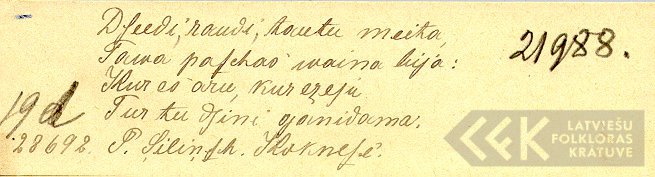 Dseedi, raudi, tautu meita,
21988.
Tawa paschas waina bija:
Kur es aru, kur ezeju
19d
Tur tu dsini ganidama.
28692. P. Siliņsch. Koknesē.
LATVIEŠU
FOLKLORAS
KRĀTUVE